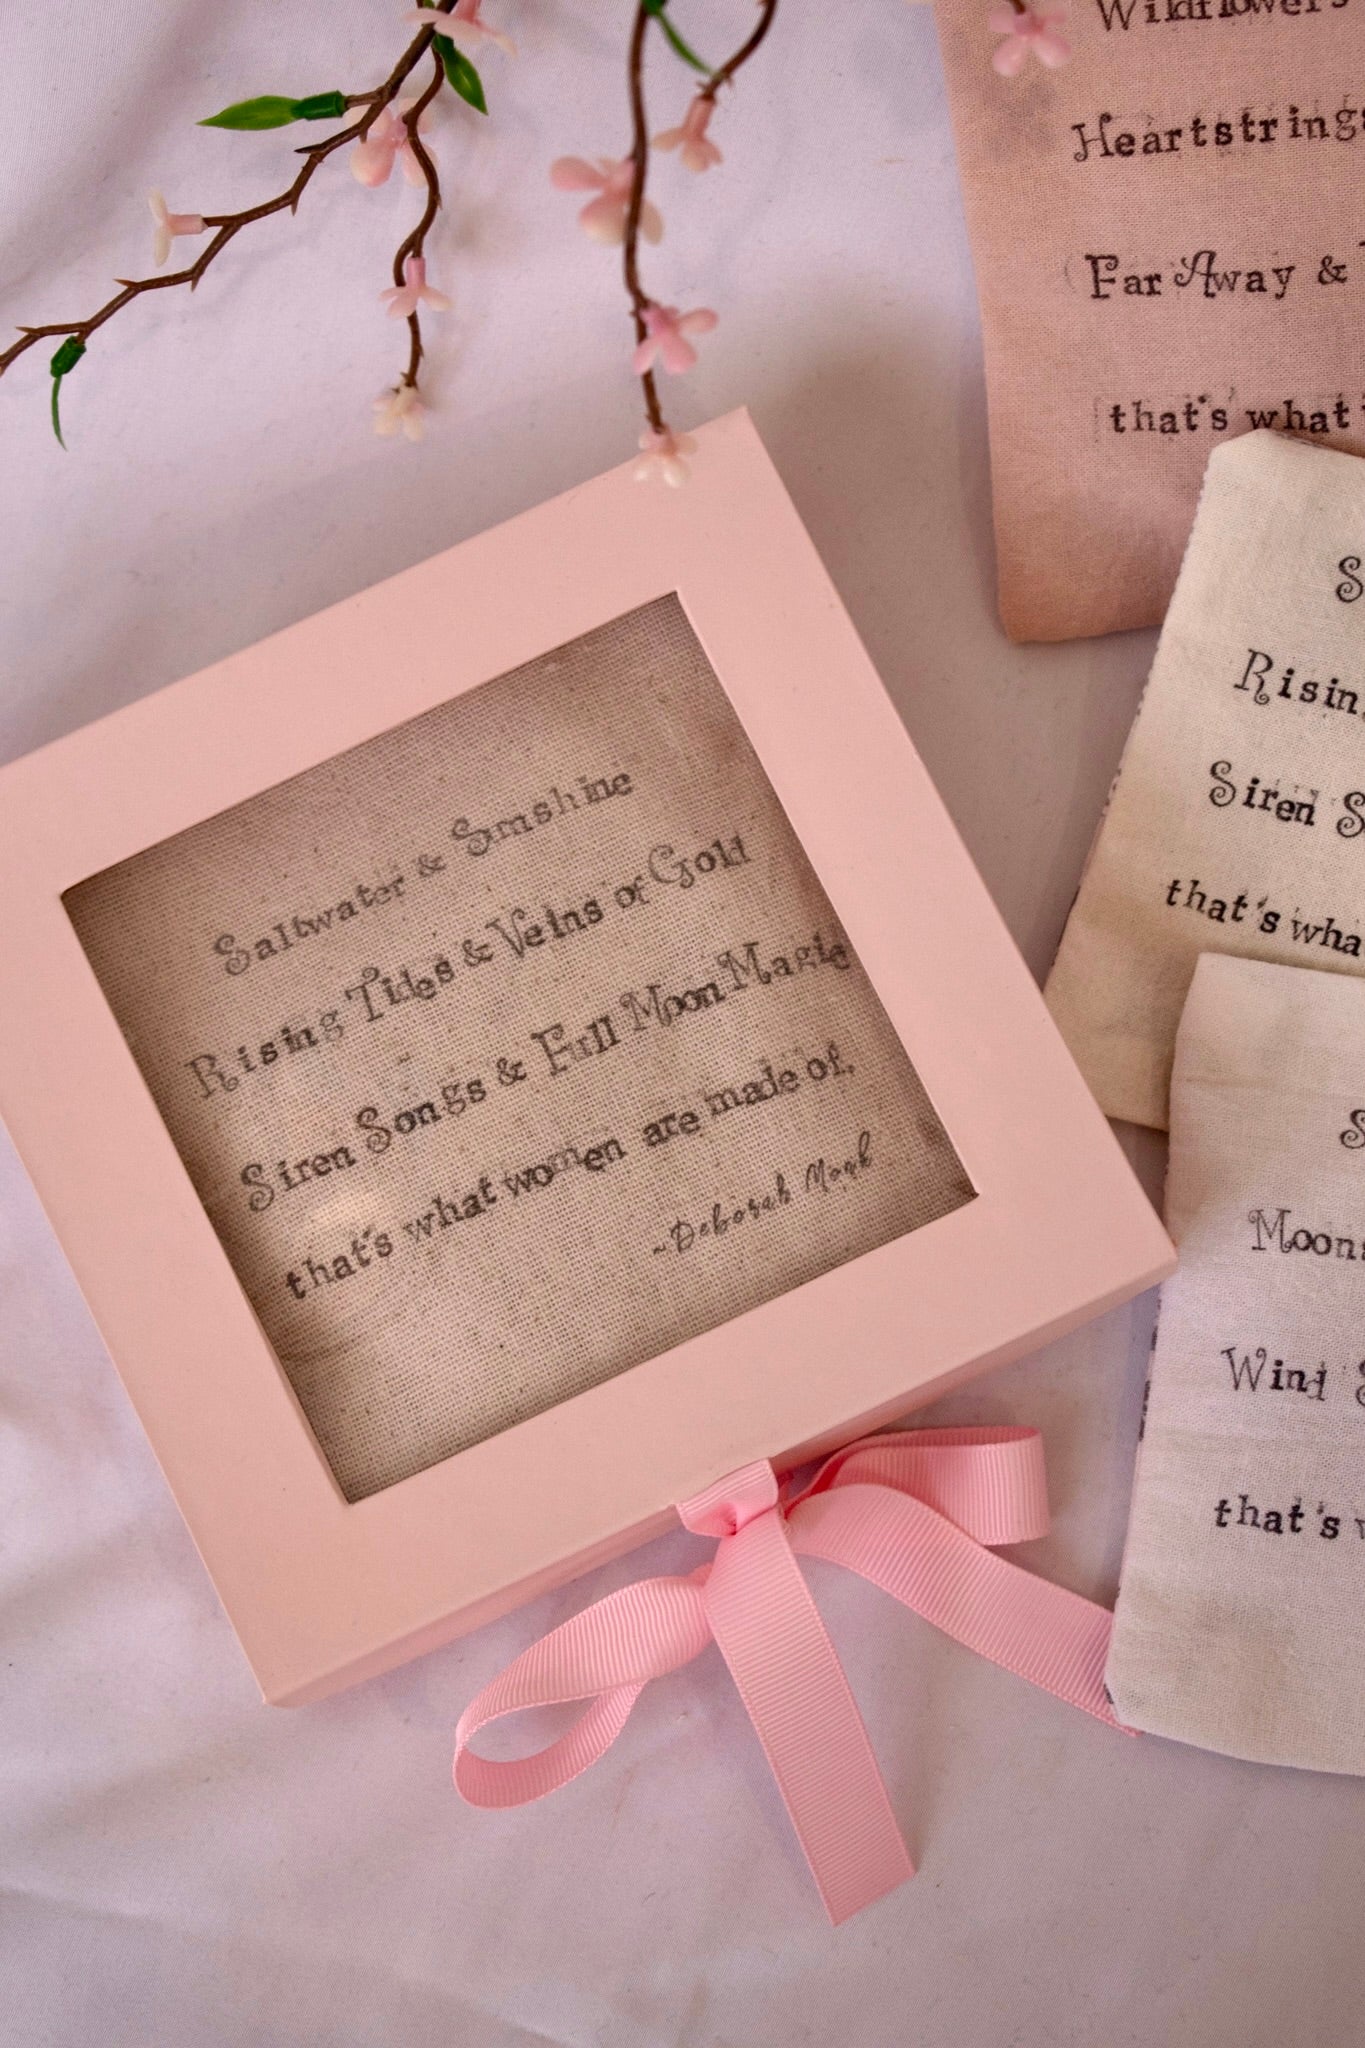 Saltwater & Sunshine
Rising Tides & Veins of Gold
Siren Songs & Full Moon Magic
that's what women are made of.
~Deborah Monk
Wildflowers
Heartstrings
Far Away &
that's what
S
Risin
Siren S
that's wha
S
Moons
Wind S
that's